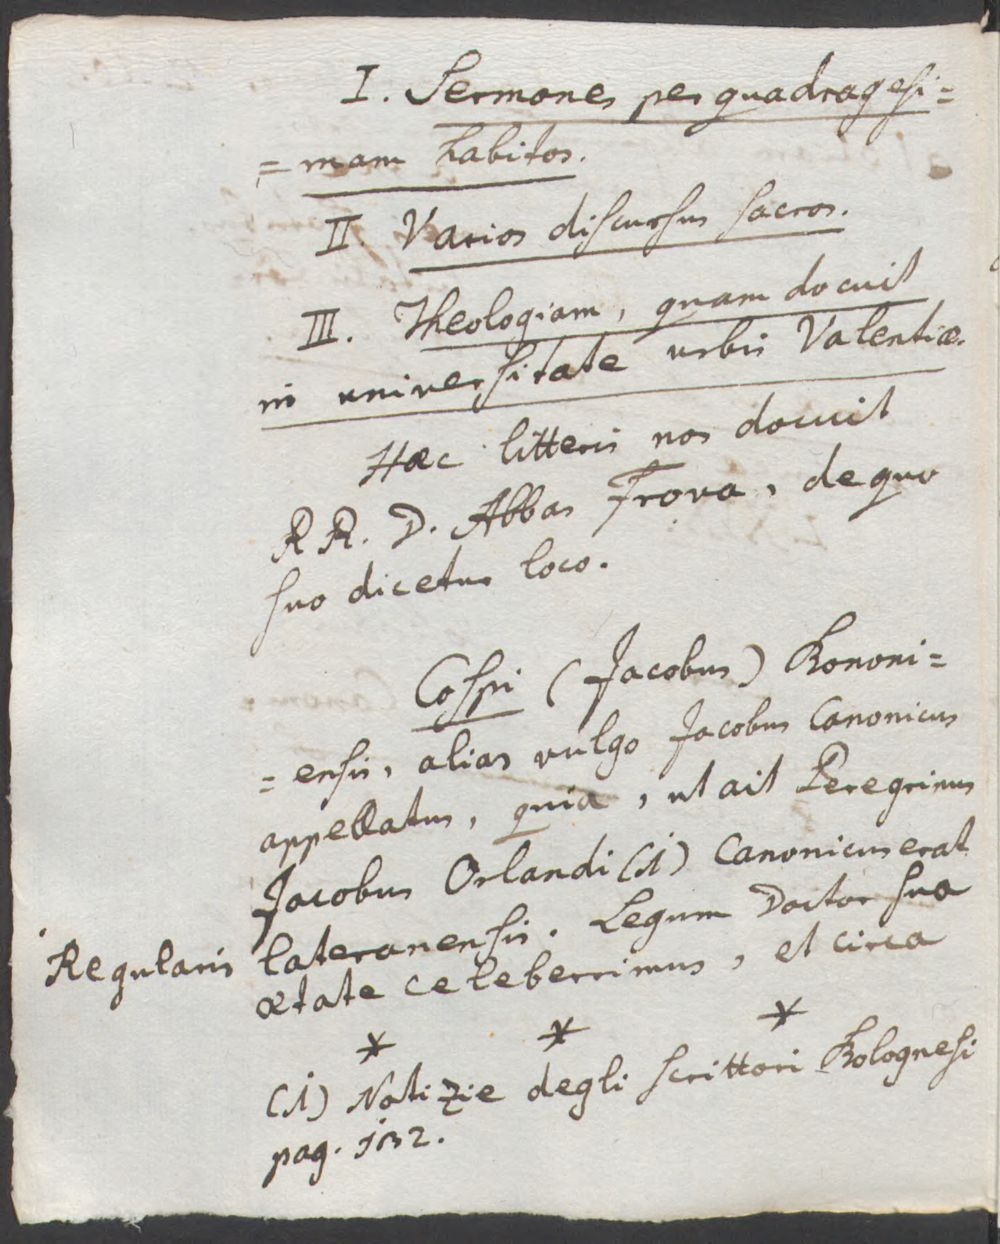 I. Sermones per quadragesi=
=mam habitos.
II. Varios discursus sacros.
III. Theologiam, quam docuit
in universitate urbis Valentiæ.
Hæc litteris nos docuit
R R. D. Abbas Frova, de quo
suo dicetur loco.
Cospi (Jacobus) Bononi=
=ensis, alias vulgo Jacobus Canonicus
appellatus, quia, ut ait Peregrinus
Jacobus Orlandi (1) Canonicus erat
Regularis lateranensis. Legum Doctor sua
ætate celeberrimus, et circa
* * *
(1) Notizie degli scrittori Bolognesi
pag. 132.